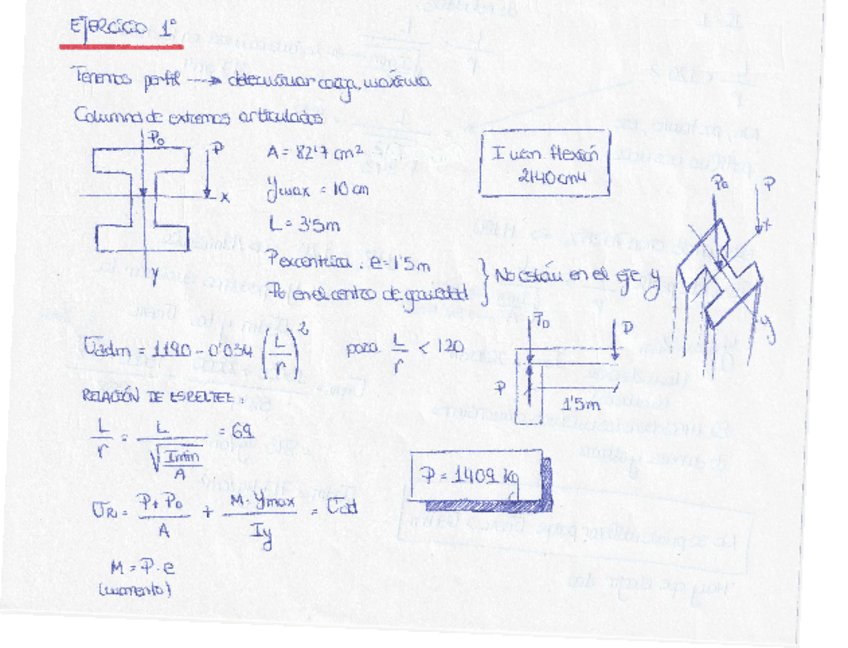 EJERCICIO 1º
Tenemos perfil ---> determinar carga máxima.
Columna de extremos articulados
P₀
P
x
y
A = 82'7 cm²
Ymax = 10 cm
L = 3'5m
P excentrica. e = 1'5m
P₀ en el centro de gravedad
} No están en el eje y
I flexión
2140 cm4
P₀
P
x
y
σadm = 1190 - 0'034 (L/r)² para L/r < 120
P₀
P
P
1'5m
RELACIÓN DE ESBELTEZ:
L/r = L/√(Imin/A) = 69
σR = (P + P₀)/A + (M · Ymax)/Iy = σad
P = 1409 kg
M = P · e
(momento)